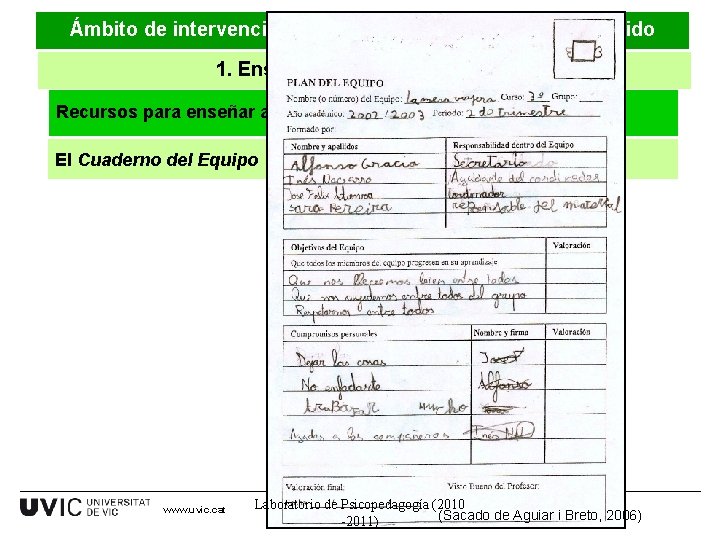 Ámbito de intervenci ido
1. Ens
Recursos para enseñar a
El Cuaderno del Equipo
PLAN DEL EQUIPO
Nombre (o número) del Equipo: La mesa viajera Curso: 3º Grupo:
Año académico: 2002 / 2003 Periodo: 2do trimestre
Formado por:
Nombre y apellidos Responsabilidad dentro del Equipo
Alfonso Gracia Secretario
Inés Navarro Ayudante del cordinador
José Félix cordonador
Sara Pereira responsable del material
Objetivos del Equipo Valoración
Que todos los miembros de equipo progresen en su aprendizaje
Que nos llevemos bien entre todos
Que nos ayudemos entre todos del grupo
Respetarnos entre todos
Compromisos personales Nombre y firma Valoración
Dejar las cosas José F
No enfadarte Alfonso
traBaJaR mucho
Ayudar a los compañeros Inés
Valoración final: Visto Bueno del Profesor:
UVIC UNIVERSITAT DE VIC
www.uvic.cat
Laboratorio de Psicopedagogía (2010
-2011)
(Sacado de Aguiar i Breto, 2006)